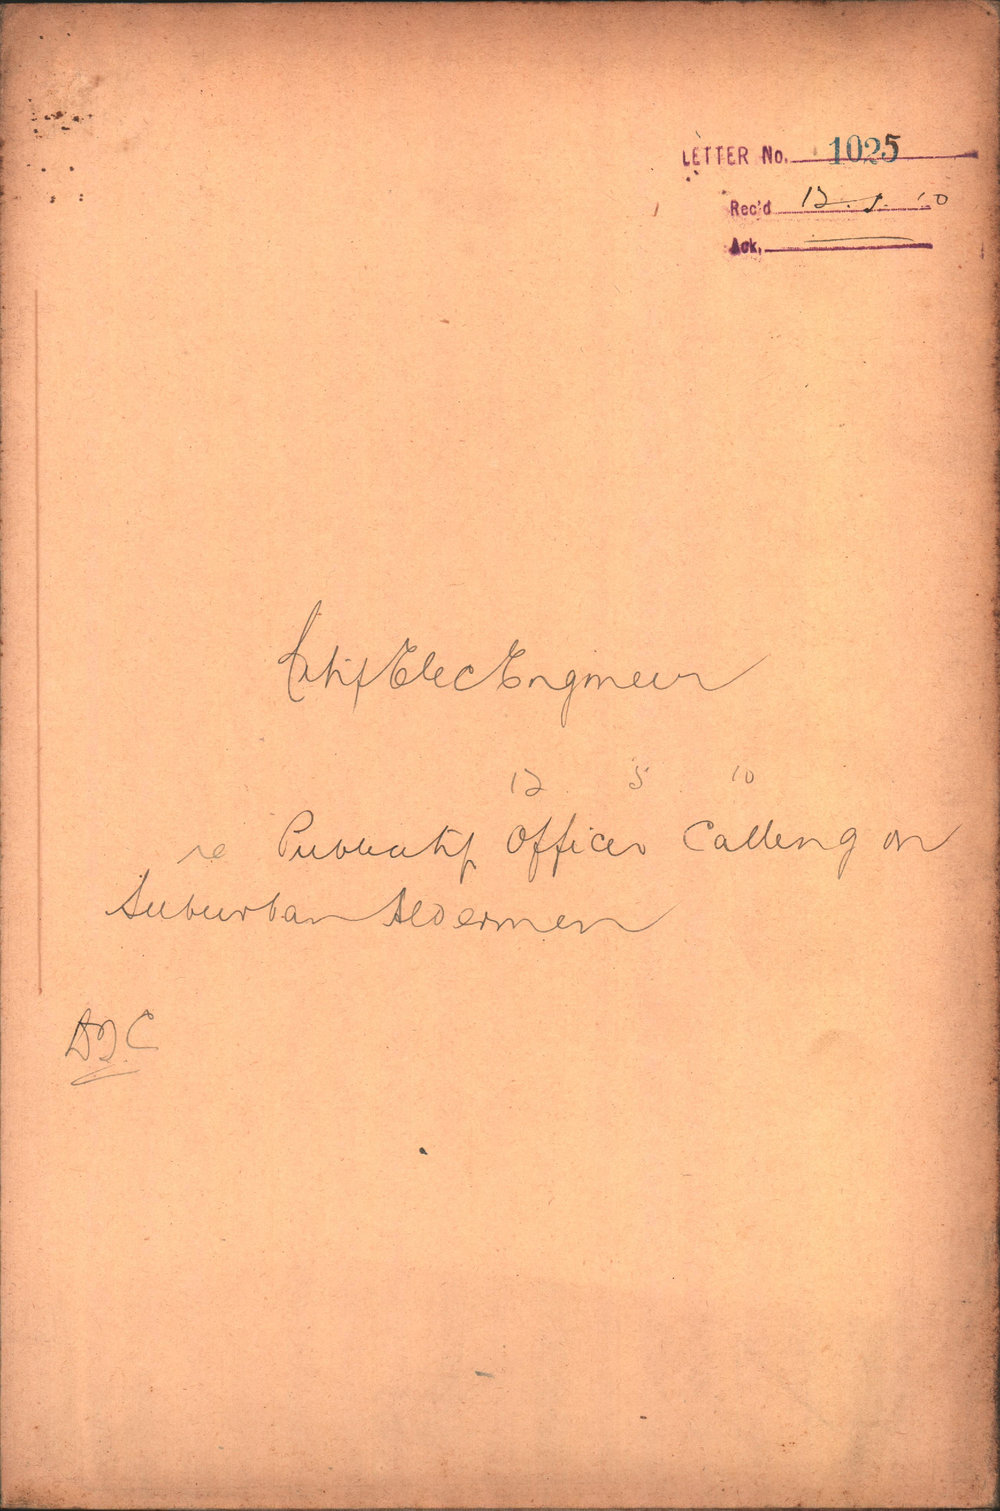 LETTER No. 1025
Rec'd 12. 5. '10
Ack.
City Elec Engineer
12 5 10
re Publicity Officer Calling on
Suburban Aldermen